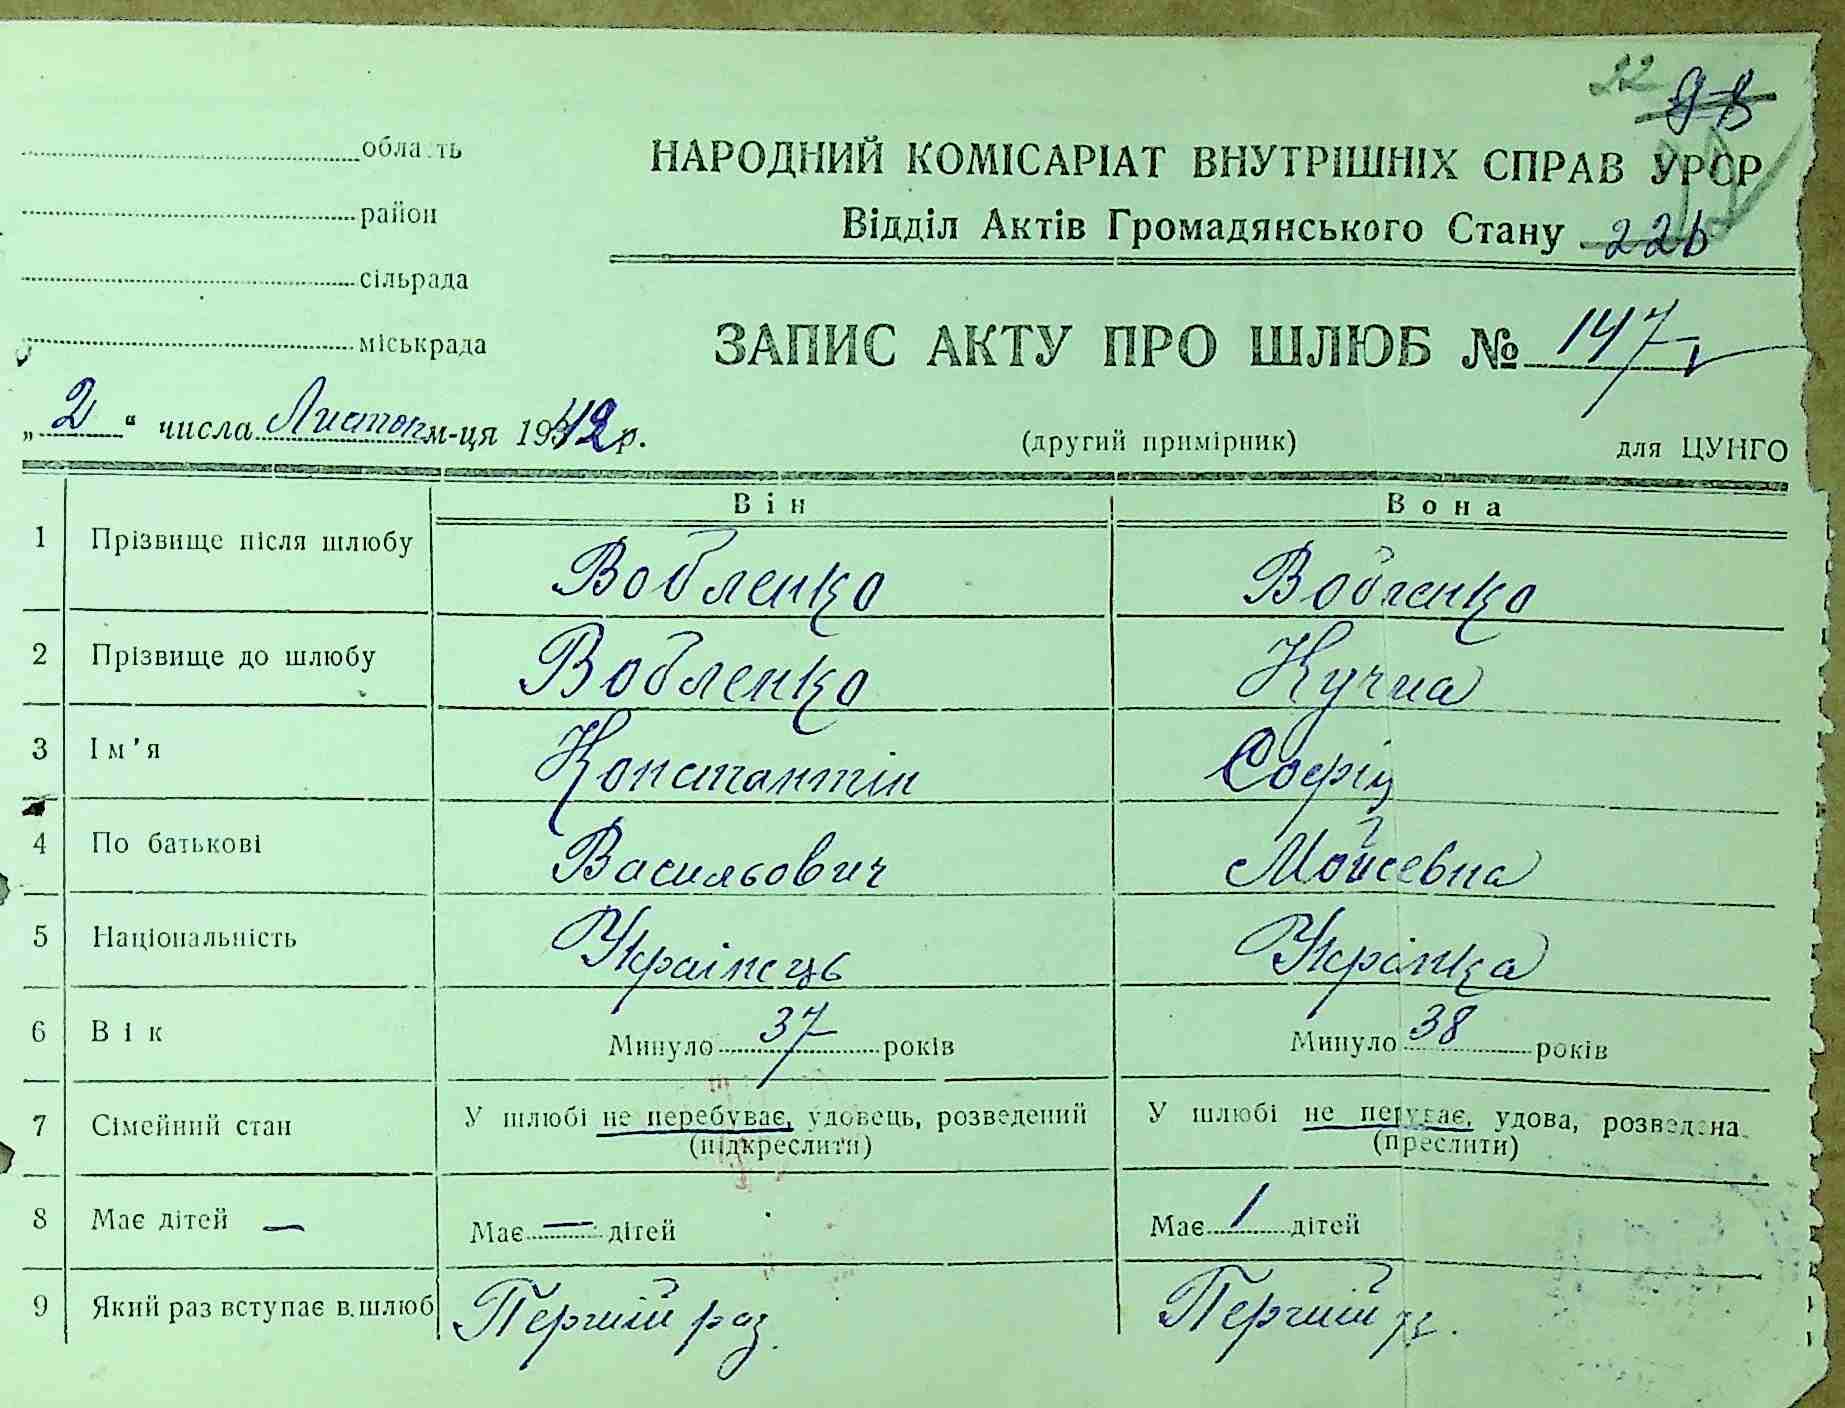 22
область
НАРОДНИЙ КОМІСАРІАТ ВНУТРІШНІХ СПРАВ УРСР
район
Відділ Актів Громадянського Стану 226
сільрада
ЗАПИС АКТУ ПРО ШЛЮБ № 147
міськрада
„ 2 “ числа Листоп м-ця 1942 р.
(другий примірник) для ЦУНГО
Він Вона
1 Прізвище після шлюбу Вобленко Вобленко
2 Прізвище до шлюбу Вобленко Кучма
3 Ім'я Константін Софія
4 По батькові Васильович Мойсевна
5 Національність Украінець Укрінка
6 Вік Минуло 37 років Минуло 38 років
7 Сімейний стан У шлюбі не перебуває, удовець, розведений У шлюбі не пегуває, удова, розведена
(підкреслити) (преслити)
8 Має дітей — Має — дітей Має 1 дітей
9 Який раз вступає в шлюб Перший раз. Перший